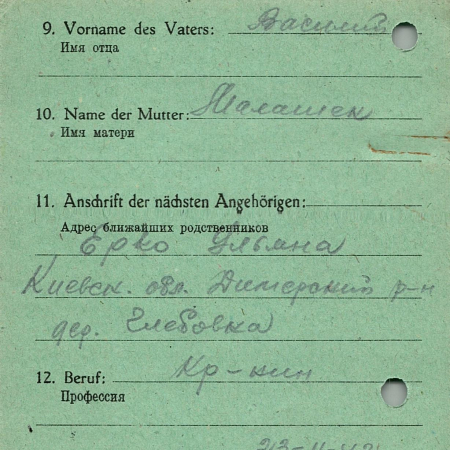 9. Vorname des Vaters: Василий
Имя отца
10. Name der Mutter: Малашек
Имя матери
11. Anschrift der nächsten Angehörigen:
Адрес ближайших родственников
Ерко Ульяна
Киевск. обл. Димерский р-н
дер. Глебовка
12. Beruf: Кр-нин
Профессия